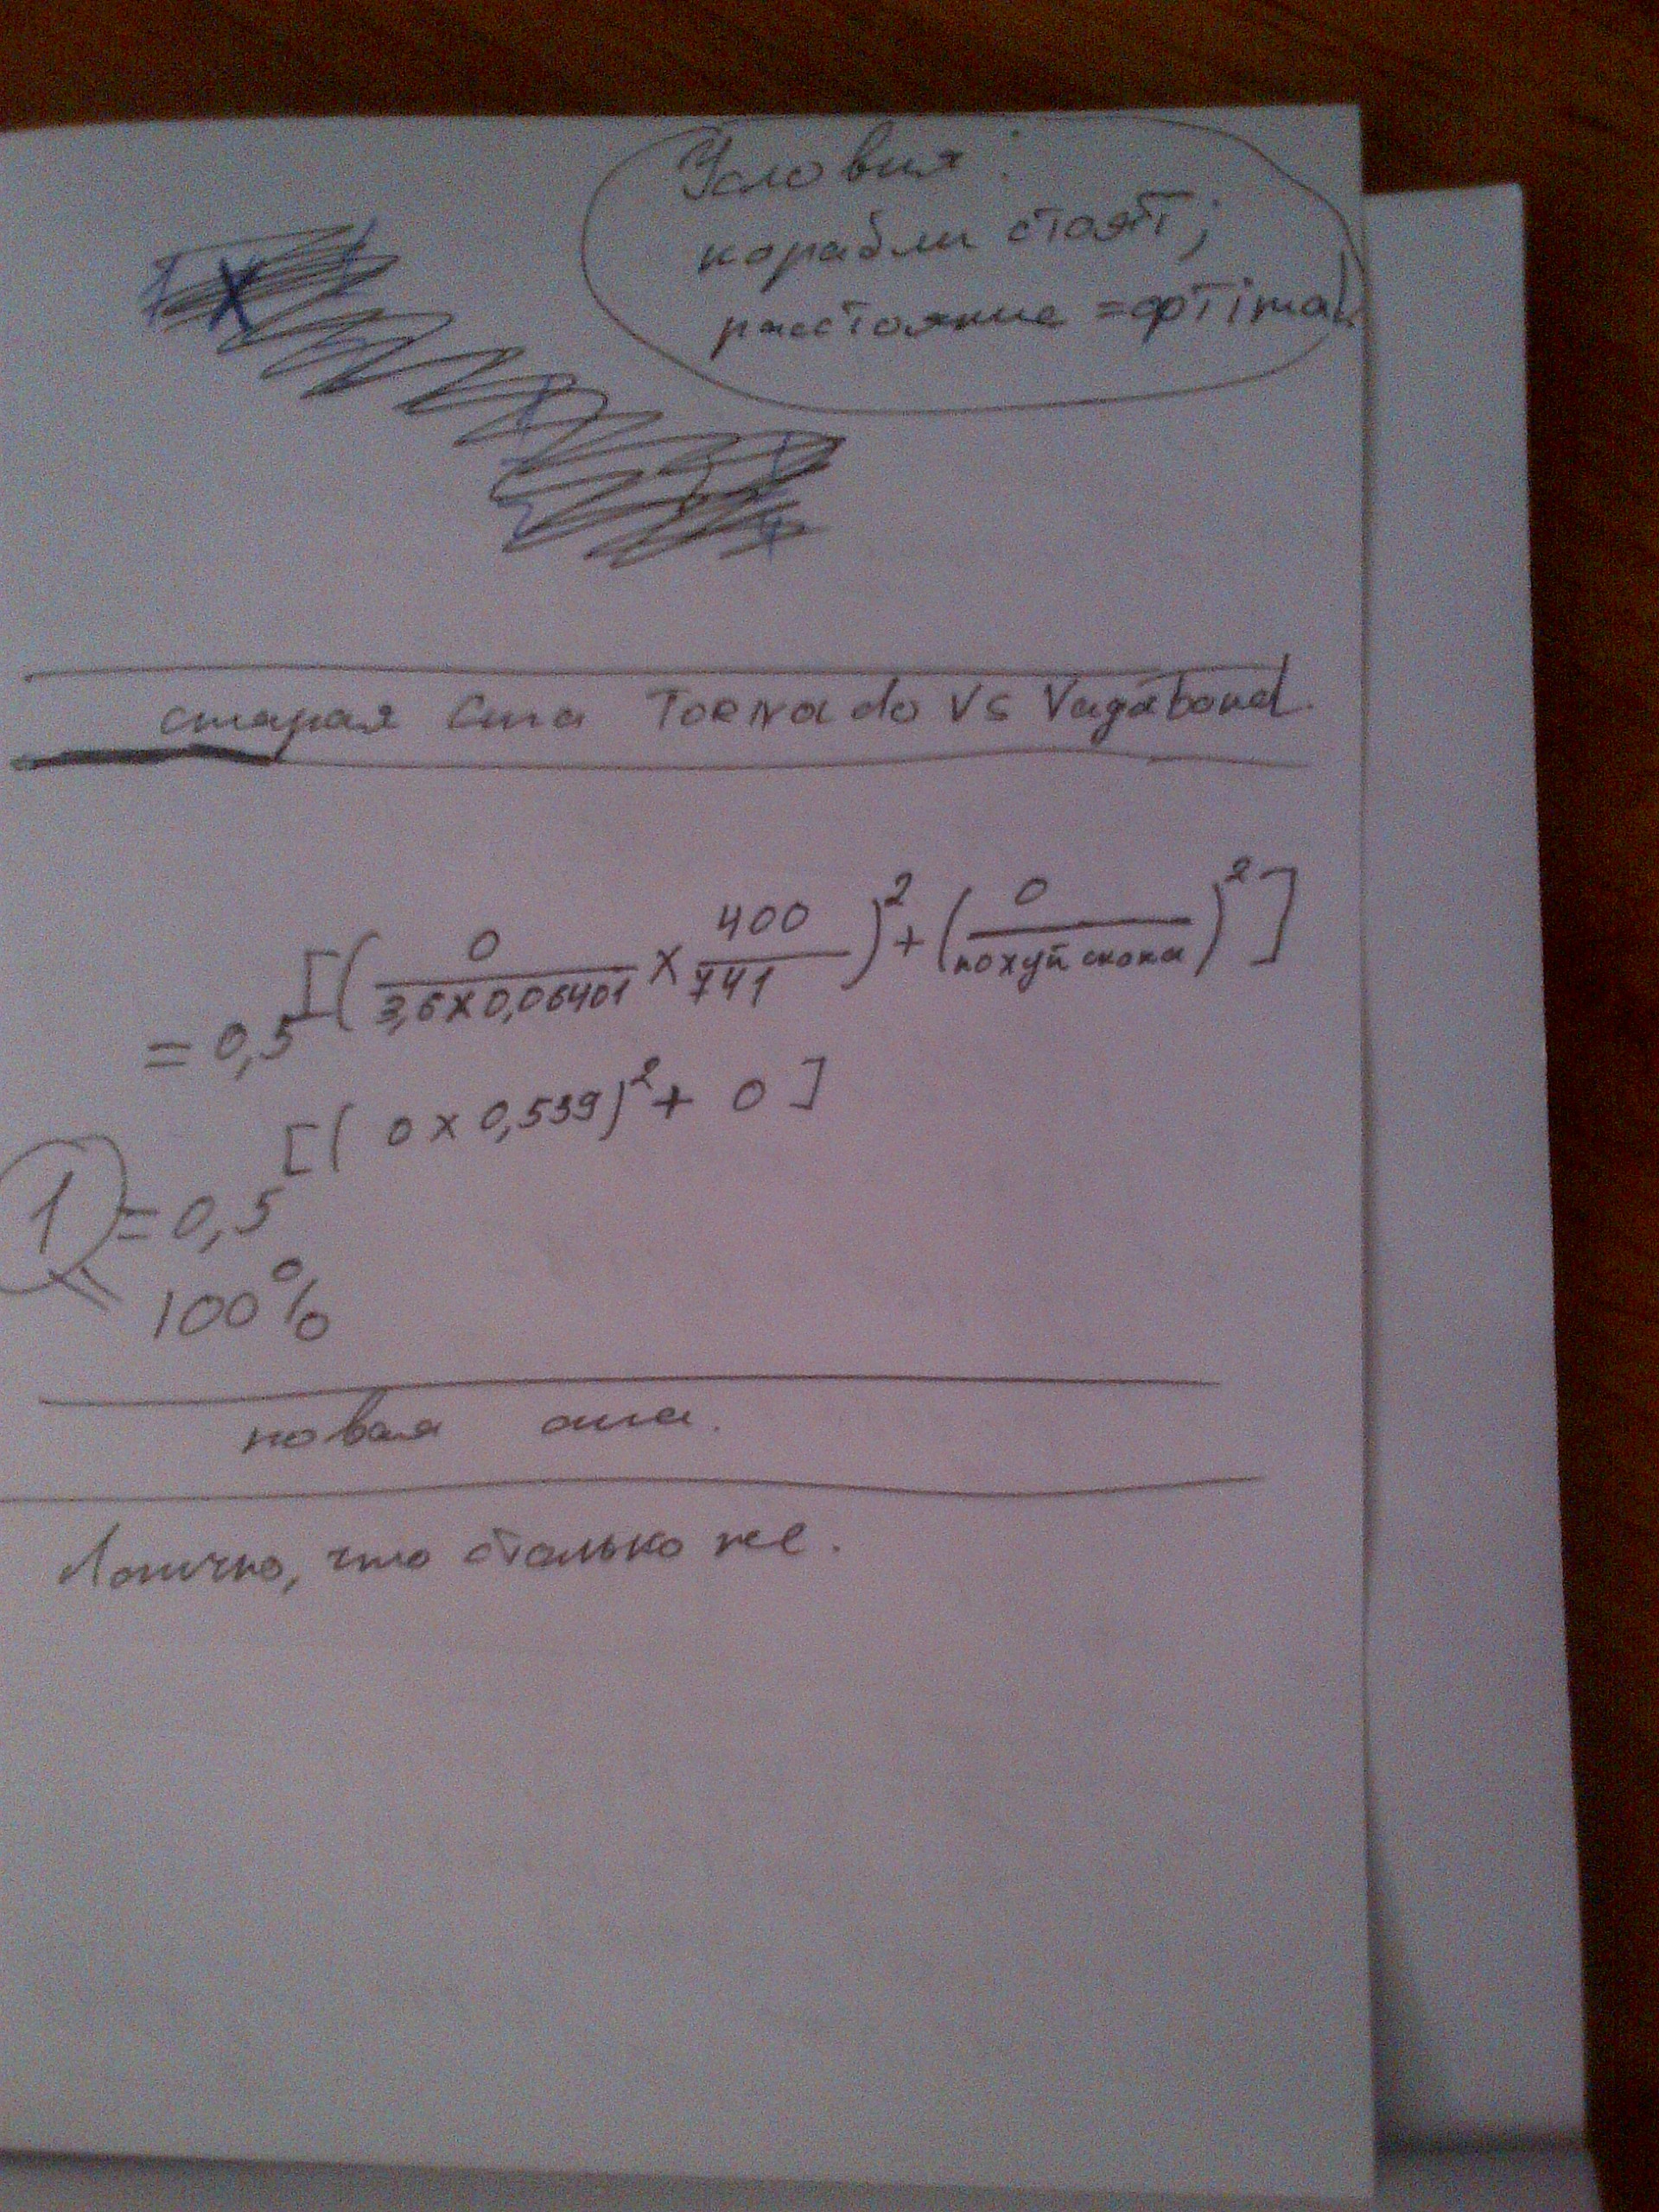 Условия:
корабли стоят;
расстояние = optimal
старая сига Tornado vs Vagabond.
= 0,5^[(0/(3,6x0,06401) x 400/741)^2 + (0/похуй скока)^2]
1 = 0,5^[(0 x 0,539)^2 + 0]
100%
новая сига.
Логично, что столько же.